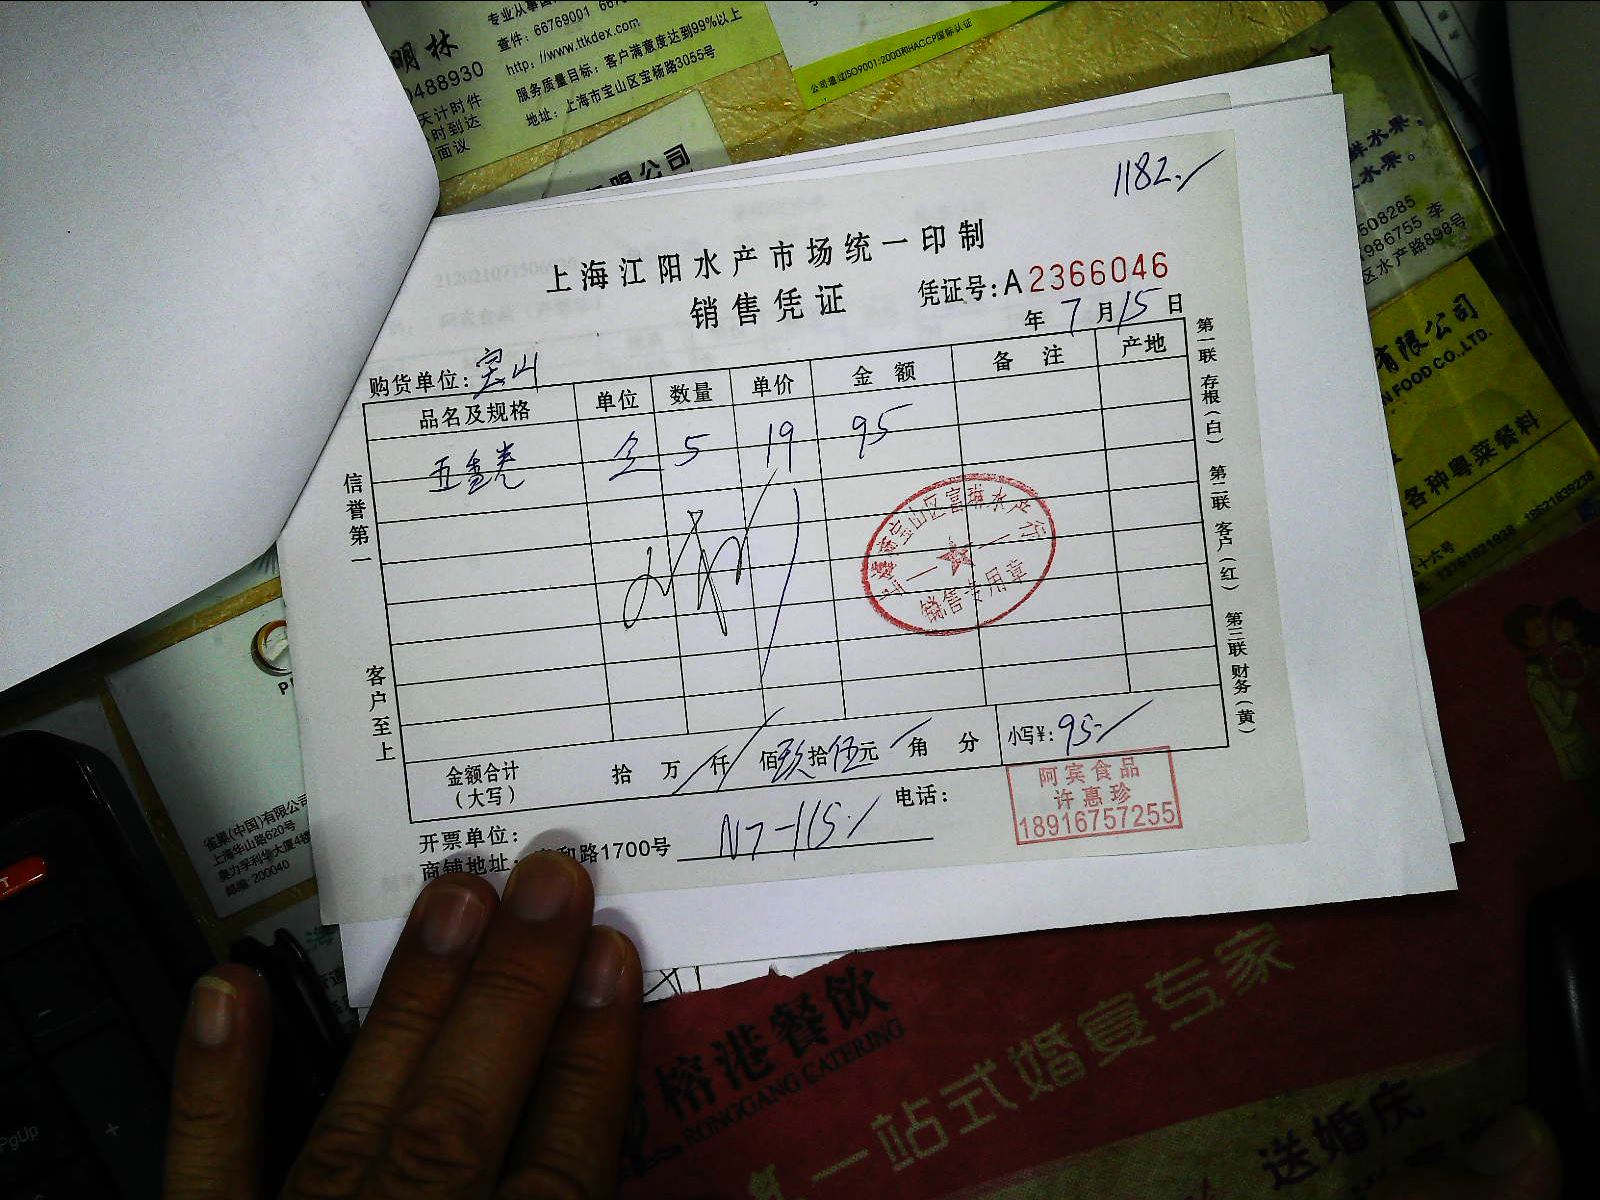 明林
0488930
天计时件
时到达
面议
查件：66769001
http：//www.ttkdex.com
服务质量目标：客户满意度达到99%以上
地址：上海市宝山区宝杨路3055号
公司通过ISO9001:2000和HACCP国际认证
限公司
鲜水果，
水果。
508285
1986755 李
区水产路898号
1182.
上海江阳水产市场统一印制
销售凭证
凭证号:A2366046
年 7 月 15 日
购货单位：宝山
品名及规格 单位 数量 单价 金额 备注 产地
5 19 95
信誉第一
客户至上
第一联 存根（白） 第二联 客户（红） 第三联 财务（黄）
上海市宝山区富琳水产行
销售专用章
金额合计（大写） 拾 万 仟 佰玖拾伍元 角 分 小写¥: 95.
开票单位：
电话：
商铺地址： 和路1700号 N7-115
阿宾食品
许惠珍
18916757255
有限公司
N FOOD CO.,LTD.
各种粤菜餐料
十六号
18621839238
雀巢(中国)有限公司
上海华山路620号
奥力孚利华大厦4楼
邮编：200040
PgUp
榕港餐飲
RONGGANG CATERING
一站式婚宴专家
送婚庆